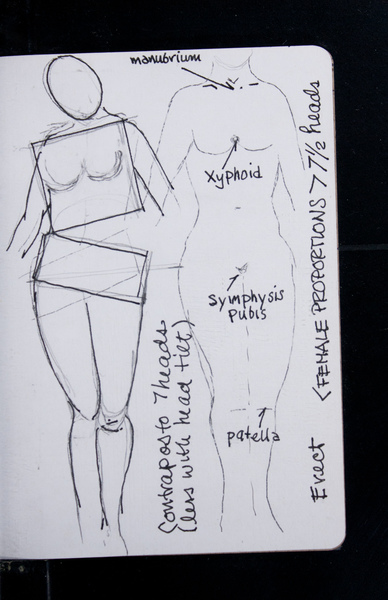 manubrium
Xyphoid
Symphysis
Pubis
patella
Contraposto 7 heads
(less with head tilt)
Erect <FEMALE PROPORTIONS > 7 1/2 heads